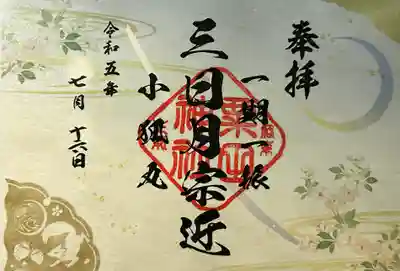 奉拝
一期一振
三日月宗近
小狐丸
令和五年
七月 十六日